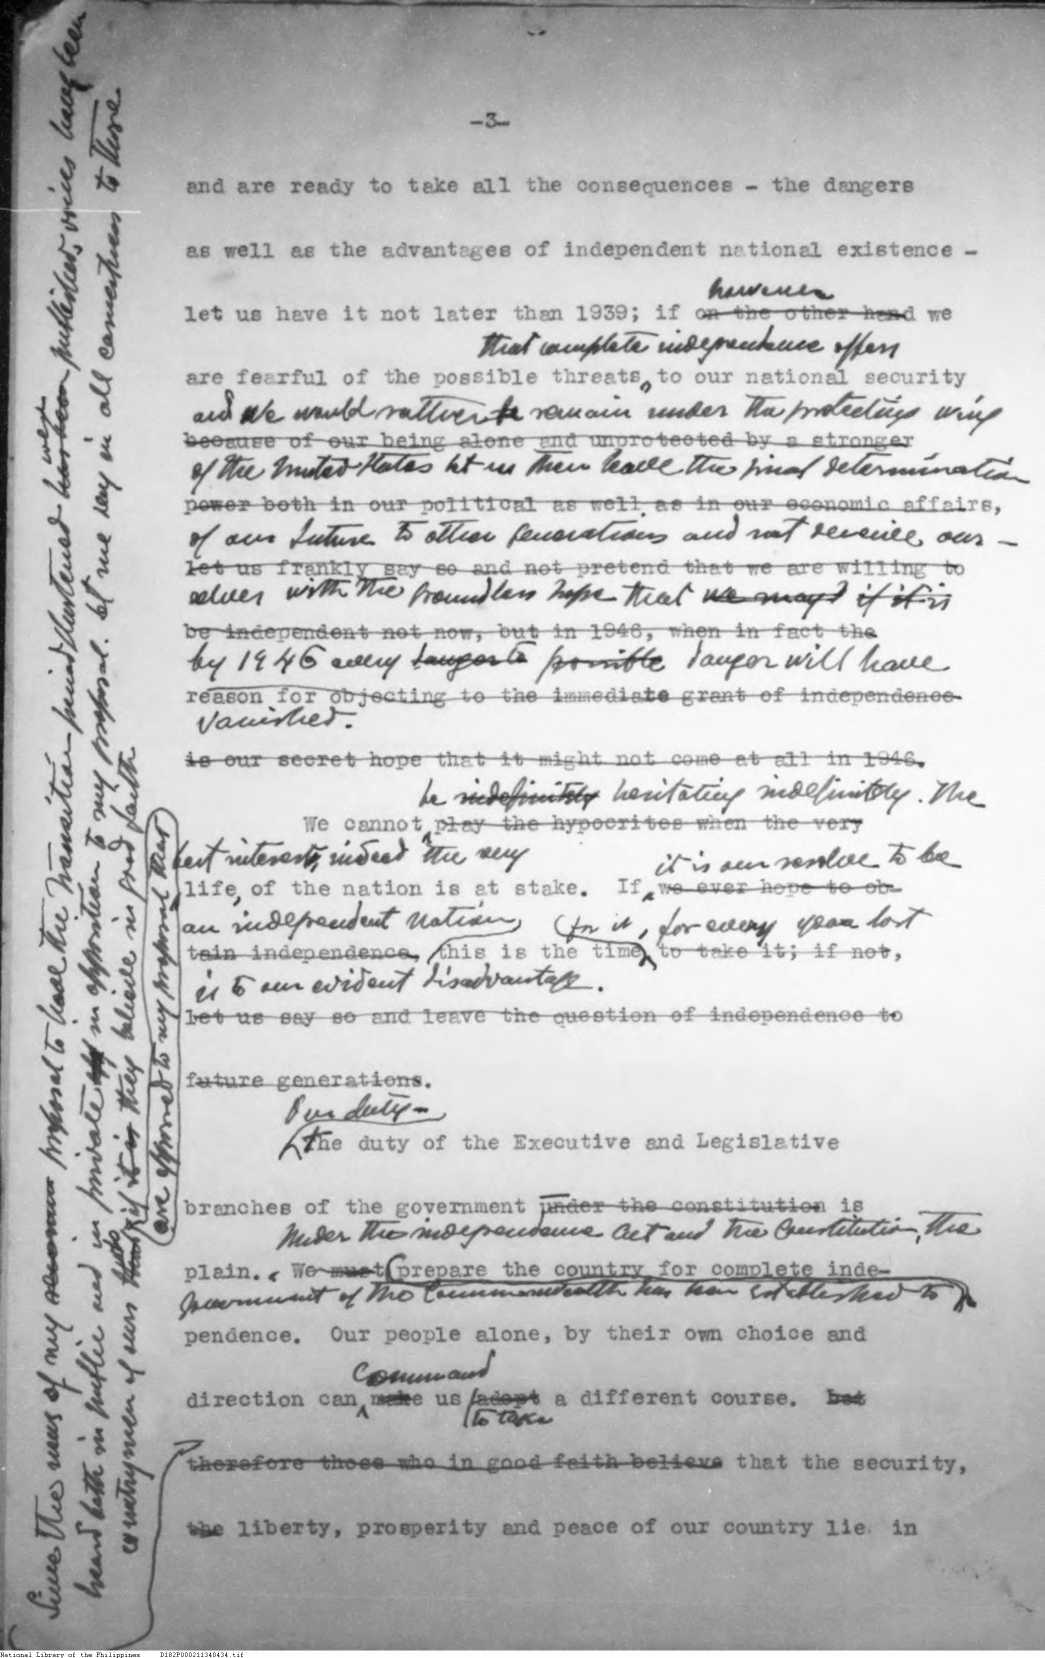 -3-
and are ready to take all the consequences - the dangers
as well as the advantages of independent national existence -
however
let us have it not later than 1939; if on the other hand we
that complete independence offers
are fearful of the possible threats to our national security
and we would rather remain under the protecting wing
because of our being alone and unprotected by a stronger
of the United States let us then leave the final determination
power both in our political as well as in our economic affairs,
of our future to other generations and not deceive our-
let us frankly say so and not pretend that we are willing to
selves with the groundless hope that we may if it is
be independent not now, but in 1946, when in fact the
by 1946 every danger to possible danger will have
reason for objecting to the immediate grant of independence
vanished.
is our secret hope that it might not come at all in 1946.
be indefinitely hesitating indefinitely. The
We cannot play the hypocrites when the very
best interests, indeed the very
it is our resolve to be
life, of the nation is at stake. If we ever hope to ob-
an independent nation, for it, for every year lost
tain independence, this is the time to take it; if not,
is to our evident disadvantage.
let us say so and leave the question of independence to
future generations.
Our duty-
The duty of the Executive and Legislative
branches of the government under the constitution is
Under the independence act and the Constitution, the
plain. We must prepare the country for complete inde-
government of the Commonwealth has been established to
pendence. Our people alone, by their own choice and
command
direction can make us adopt a different course. but
to take
therefore those who in good faith believe that the security,
the liberty, prosperity and peace of our country lie in
Since the news of my proposal to have the transition period shortened has been were published, voices have been
heard both in public and in private in opposition to my proposal. Let me say in all earnestness to those
countrymen of ours who if it is they believe in good faith
are opposed to my proposal that
National Library of the Philippines D182P000211340434.tif